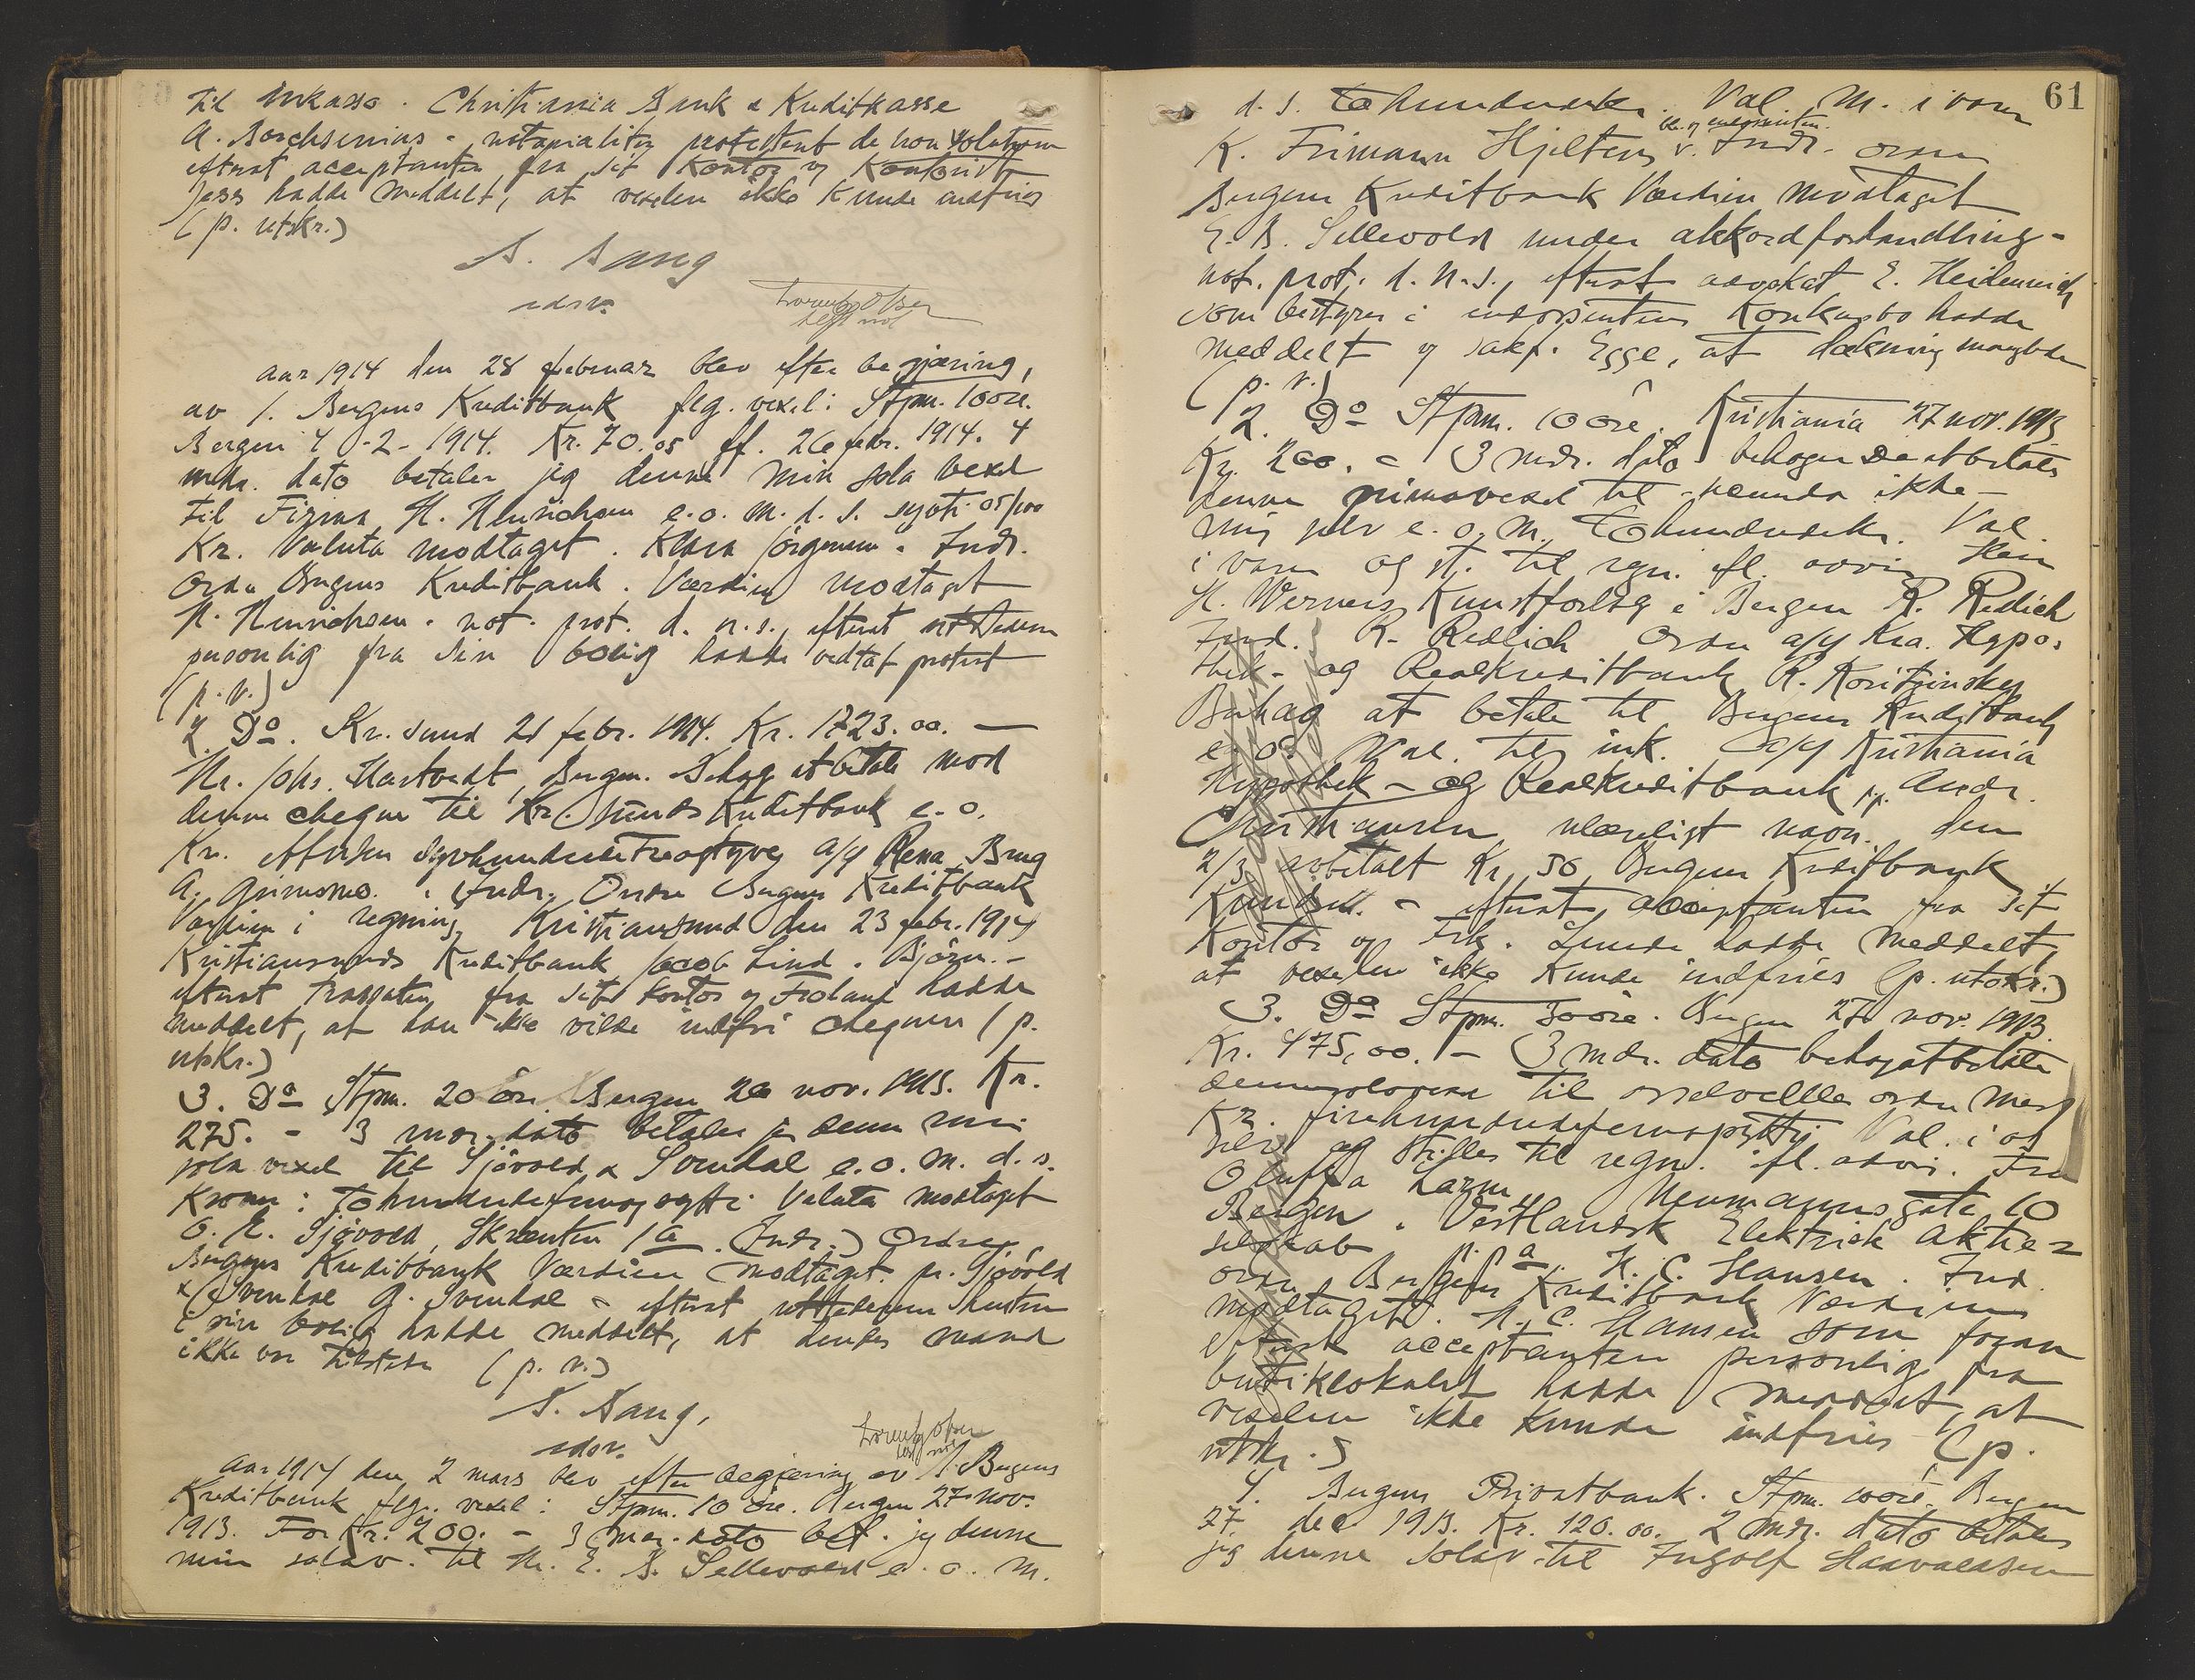 til inkasso. Christiania Bank & Kreditkasse
A. Borchsenius - notarialiter protestert de non solutione
efterat acceptanten fra sit kontor og kontorist
Jess hadde meddelt, at vexelen ikke kunde indfries
(p. utskr.)
S. Bang
edsv.
Lorentz Olsen
aar 1914 den 28 februar blev efter begjæring,
av 1. Bergens Kreditbank flg. vexel: Stpm. 10 øre.
Bergen 4-2-1914. Kr. 70.05 ff. 26 febr. 1914. 4
dato betaler jeg denne min sola vexel
til Firma H. Hinrichsen e. o. m. d. s. sytti 05/100
Kr. Valuta modtaget. Klara Jørgensen. Indr.
Ordre Bergens Kreditbank. Værdien modtaget
H. Hinrichsen. not. prot. d. n. s., efterat utstederen
personlig fra sin bolig hadde vedtat protest
(p. v.)
2. Do. Kr.sund 21 febr. 1914. Kr. 1723.00. —
Hr. Johs. Hartvedt, Bergen. Behag at betale mod
denne cheque til Kr.sunds Kreditbank e. o.
Kr. syvhundredetreogtyve a/s Rena Brug
A. Grimsmo. Indr. Ordre Bergens Kreditbank
Værdien i regning. Kristiansund den 23 febr. 1914
Kristiansunds Kreditbank Jacob Lind. Bjørn. -
efterat trassaten fra sit kontor og hadde
meddelt, at han ikke vilde indfri chequen (p.
utskr.)
3. Do Stpm. 20 øre. Bergen 26 nov. 1913. Kr.
275. - 3 mdr. dato betaler jeg denne min
sola vexel til Sjøvold & Svendal e. o. m. d. s.
Kroner: Tohundredefemogsytti. Valuta modtaget
O. E. Sjøvold, Skrenten 1a. (Indr.) Ordre
Bergens Kreditbank Værdien modtaget. pr. Sjøvold
& Svendal G. Svendal - efterat utstederens hustru
i sin bolig hadde meddelt, at hendes mand
ikke var tilstede (p. v.)
S. Bang,
edsv.
Lorentz Olsen
aar 1914 den 2 mars blev efter begjæring av 1. Bergens
Kreditbank flg. vexel: Stpm. 10 øre. Bergen 27 nov.
1913. For Kr. 200. - 3 mdr. dato bet. jeg denne
min solav. til Hr. E. B. Sellevold e. o. m.
61
d. s. tohundredekr. Val. m. i varer
K. Frimann Hjeltens v. Indr. ordre
Bergens Kreditbank Værdien modtaget
E. B. Sellevold under akkordforhandling -
not. prot. d. n. s., efterat advokat E. Heidenreich
som bestyrer i endossentens konkursbo hadde
meddelt og sakf. Egge, at dækning manglede
(p. v.)
2. Do Stpm. 10 øre. Kristiania 27 nov. 1913
Kr. 200. - 3 mdr. dato behager De at betale
denne primavexel til - secunda ikke -
mig selv e. o. m. Tohundredekr. Val.
i varer og st. til regn. ifl. advis Herr
H. Werners Kunstforlag i Bergen R. Redlich
Ind. R. Redlich Ordre a/s Kra. Hypo-
thek- og Realkreditbank R. Koritzinsky
Behag at betale til Bergens Kreditbank
e. o. Val. til ink. a/s Kristiania
Hypothek- og Realkreditbank p.p. Andr.
Christiansen, ulæseligt navn. den
2/3 avbetalt Kr. 50 Bergens Kreditbank
- efterat acceptanten fra sit
kontor og Frk. Lunde hadde meddelt,
at vexelen ikke kunde indfries (p. utskr.)
3. Do Stpm. 30 øre. Bergen 27 nov. 1913
Kr. 475,00. - 3 mdr. dato behag at betale
denne til osselv eller ordre med
Kr. firehundredefemogsytti Val. i os
selv og stilles til regn. ifl. advis. Fru
Oluffa Larm Neumannsgate 10
Bergen. Vestlandsk Elektrisk Aktie-
selskab p. p. a. H. C. Hansen. Ind.
ordre Bergens Kreditbank Værdien
modtaget. H. C. Hansen som foran
efterat acceptanten personlig fra
butiklokalet hadde meddelt, at
vexelen ikke kunde indfries (p.
utskr.)
4. Bergens Privatbank. Stpm. 10 øre. Bergen
27. dec 1913. Kr. 120.00. 2 mdr. dato betaler
jeg denne solav. til Ingolf Haavaldsen